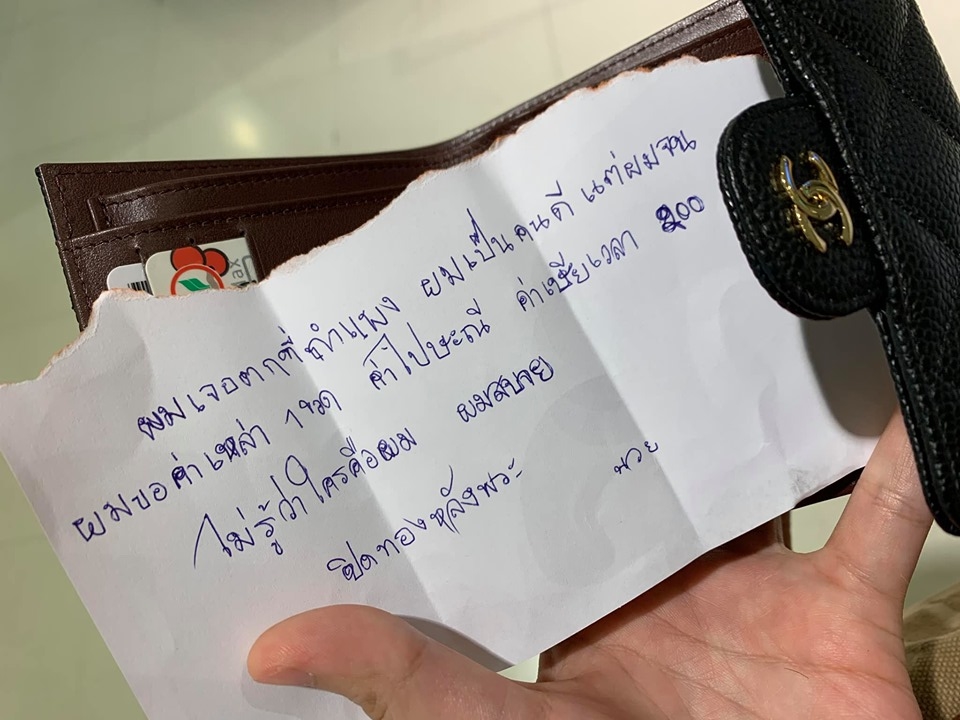 ผมเจอตกที่กำแพง ผมเป็นคนดี แต่ผมจน
ผมขอค่าเหล่า 1 ขวด ค่าไปษะณี ค่าเชียเวลา 200
ไม่รู้ว่าใครคือผม ผมสบาย
ปิดทองหลังพระ